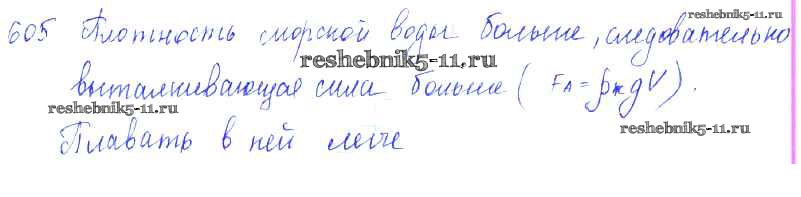 605 Плотность морской воды больше, следовательно
выталкивающая сила больше (FA=ρжgV).
Плавать в ней легче
reshebnik5-11.ru
reshebnik5-11.ru
reshebnik5-11.ru
reshebnik5-11.ru
reshebnik5-11.ru